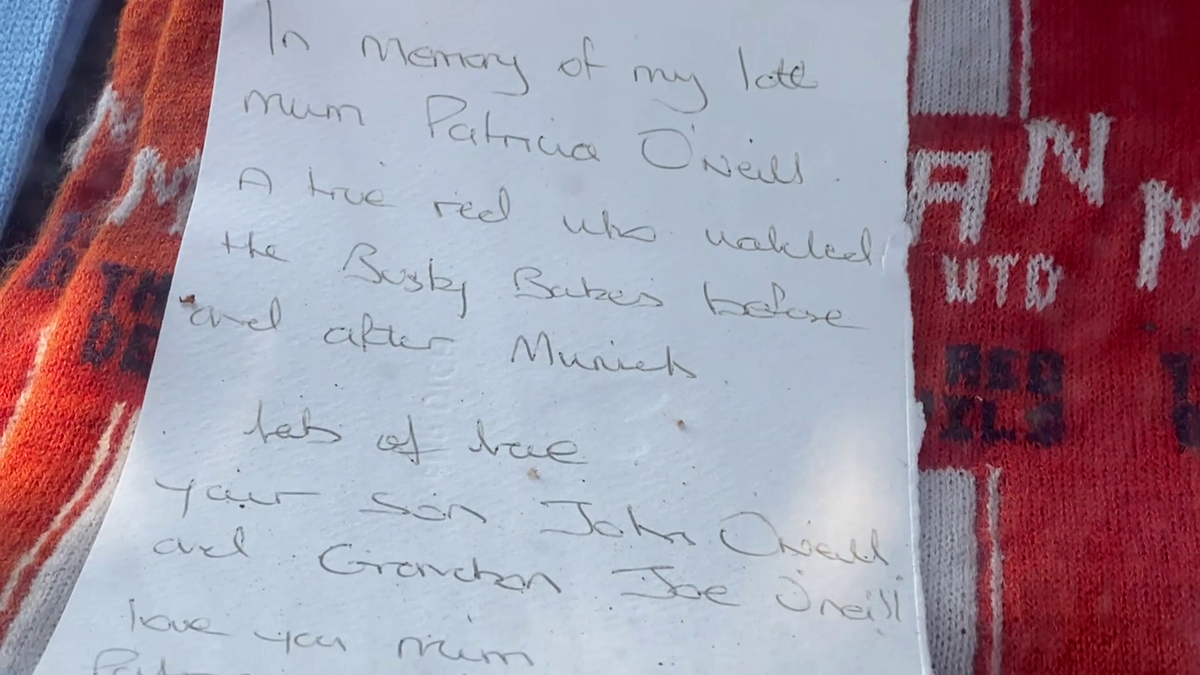 In Memory of my late
mum Patricia O'Neill.
A true red who watched
the Busby Babes before
and after Munich
lots of love
your son John O'Neill
and Grandson Joe O'neill
love you mum
MAN
UTD
RED